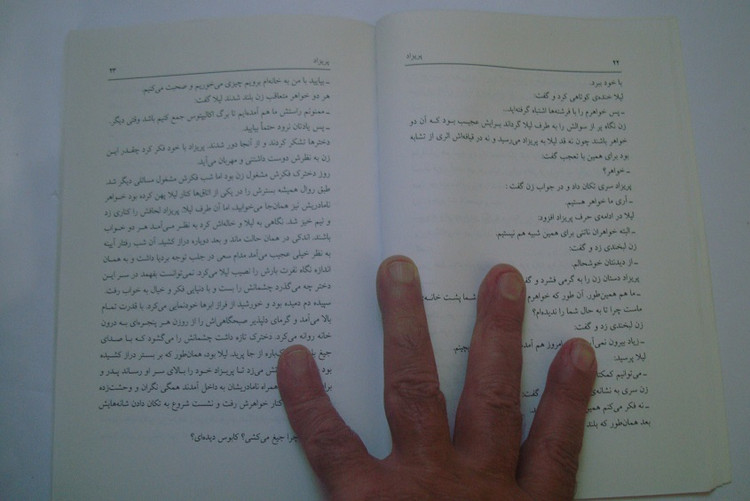 ۲۲ پریزاد
با خود ببرد.
لیلا خنده‌ی کوتاهی کرد و گفت:
ـ پس خواهرم را با فرشته‌ها اشتباه گرفته‌اید...
زن نگاه پر از سوالش را به طرف لیلا گرداند برایش عجیب بود که آن دو
خواهر باشند چون نه قد لیلا به پریزاد می‌رسید و نه در قیافه‌اش اثری از تشابه
بود برای همین با تعجب گفت:
ـ خواهر؟
پریزاد سری تکان داد و در جواب زن گفت:
ـ آری ما خواهر هستیم.
لیلا در ادامه‌ی حرف پریزاد افزود:
ـ البته خواهران ناتنی برای همین شبیه هم نیستیم.
زن لبخندی زد و گفت:
ـ از دیدنتان خوشحالم.
پریزاد دستان زن را به گرمی فشرد و
ـ ما هم همین‌طور، آن طور که خواهرم شما پشت خانه‌ی
ماست چرا تا به حال شما را ندیده‌ام؟
زن لبخندی زد و گفت:
ـ زیاد بیرون نمی امروز هم آمدم
لیلا پرسید:
ـ می‌توانیم
زن سری به نشانه‌ی گفت:
ـ نه فکر می‌کنم همین
بعد همان‌طور که بلند
پریزاد ۲۳
ـ بیایید با من به خانه‌ام برویم چیزی می‌خوریم و صحبت می‌کنیم.
هر دو خواهر متعاقب زن بلند شدند لیلا گفت:
ـ ممنونم راستش ما هم آمده‌ایم تا برگ اکالیپتوس جمع کنیم باشد وقتی دیگر.
ـ پس یادتان نرود حتماً بیایید.
دخترها تشکر کردند و از آنجا دور شدند. پریزاد با خود فکر کرد چقدر این
زن به نظرش دوست داشتنی و مهربان می‌آید.
روز دخترک فکرش مشغول زن بود اما شب فکرش مشغول مسائلی دیگر شد.
طبق روال همیشه بسترش را در یکی از اتاق‌ها کنار لیلا پهن کرده بود خواهر
نامادریش نیز همان‌جا می‌خوابید، اما آن طرف لیلا. پریزاد لحافش را کناری زد
و نیم خیز شد. نگاهی به لیلا و خاله‌اش کرد به نظر می‌آمد هر دو خواب
باشند، اندکی در همان حالت ماند و بعد دوباره دراز کشید. آن شب رفتار آیینه
به نظر خیلی عجیب می‌آمد مدام سعی در جلب توجه بردیا داشت و به همان
اندازه نگاه نفرت بارش را نصیب لیلا می‌کرد. نمی‌توانست بفهمد در سر این
دختر چه می‌گذرد چشمانش را بست و با دنیایی فکر و خیال به خواب رفت.
سپیده دم دمیده بود و خورشید از فراز ابرها خودنمایی می‌کرد. با قدرت تمام
بالا می‌آمد و گرمای دلپذیر صبحگاهیش را از روزن هر پنجره‌ای به درون
خانه روانه می‌کرد. دخترک تازه داشت چشمانش را می‌گشود که با صدای
جیغ یک‌باره از جا پرید. لیلا بود، همان‌طور که بر بستر دراز کشیده
بود می‌زد تا پریزاد خود را بالای سر او رساند پدر و
همراه نامادریشان به داخل آمدند همگی نگران و وحشت‌زده
کنار خواهرش رفت و نشست شروع به تکان دادن شانه‌هایش
چرا جیغ می‌کشی؟ کابوس دیده‌ای؟